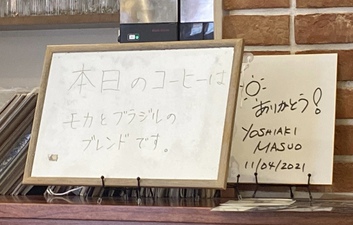 本日のコーヒーは
モカとブラジルの
ブレンドです。
ありがとう!
YOSHIAKI
MASUO
11/04/2021